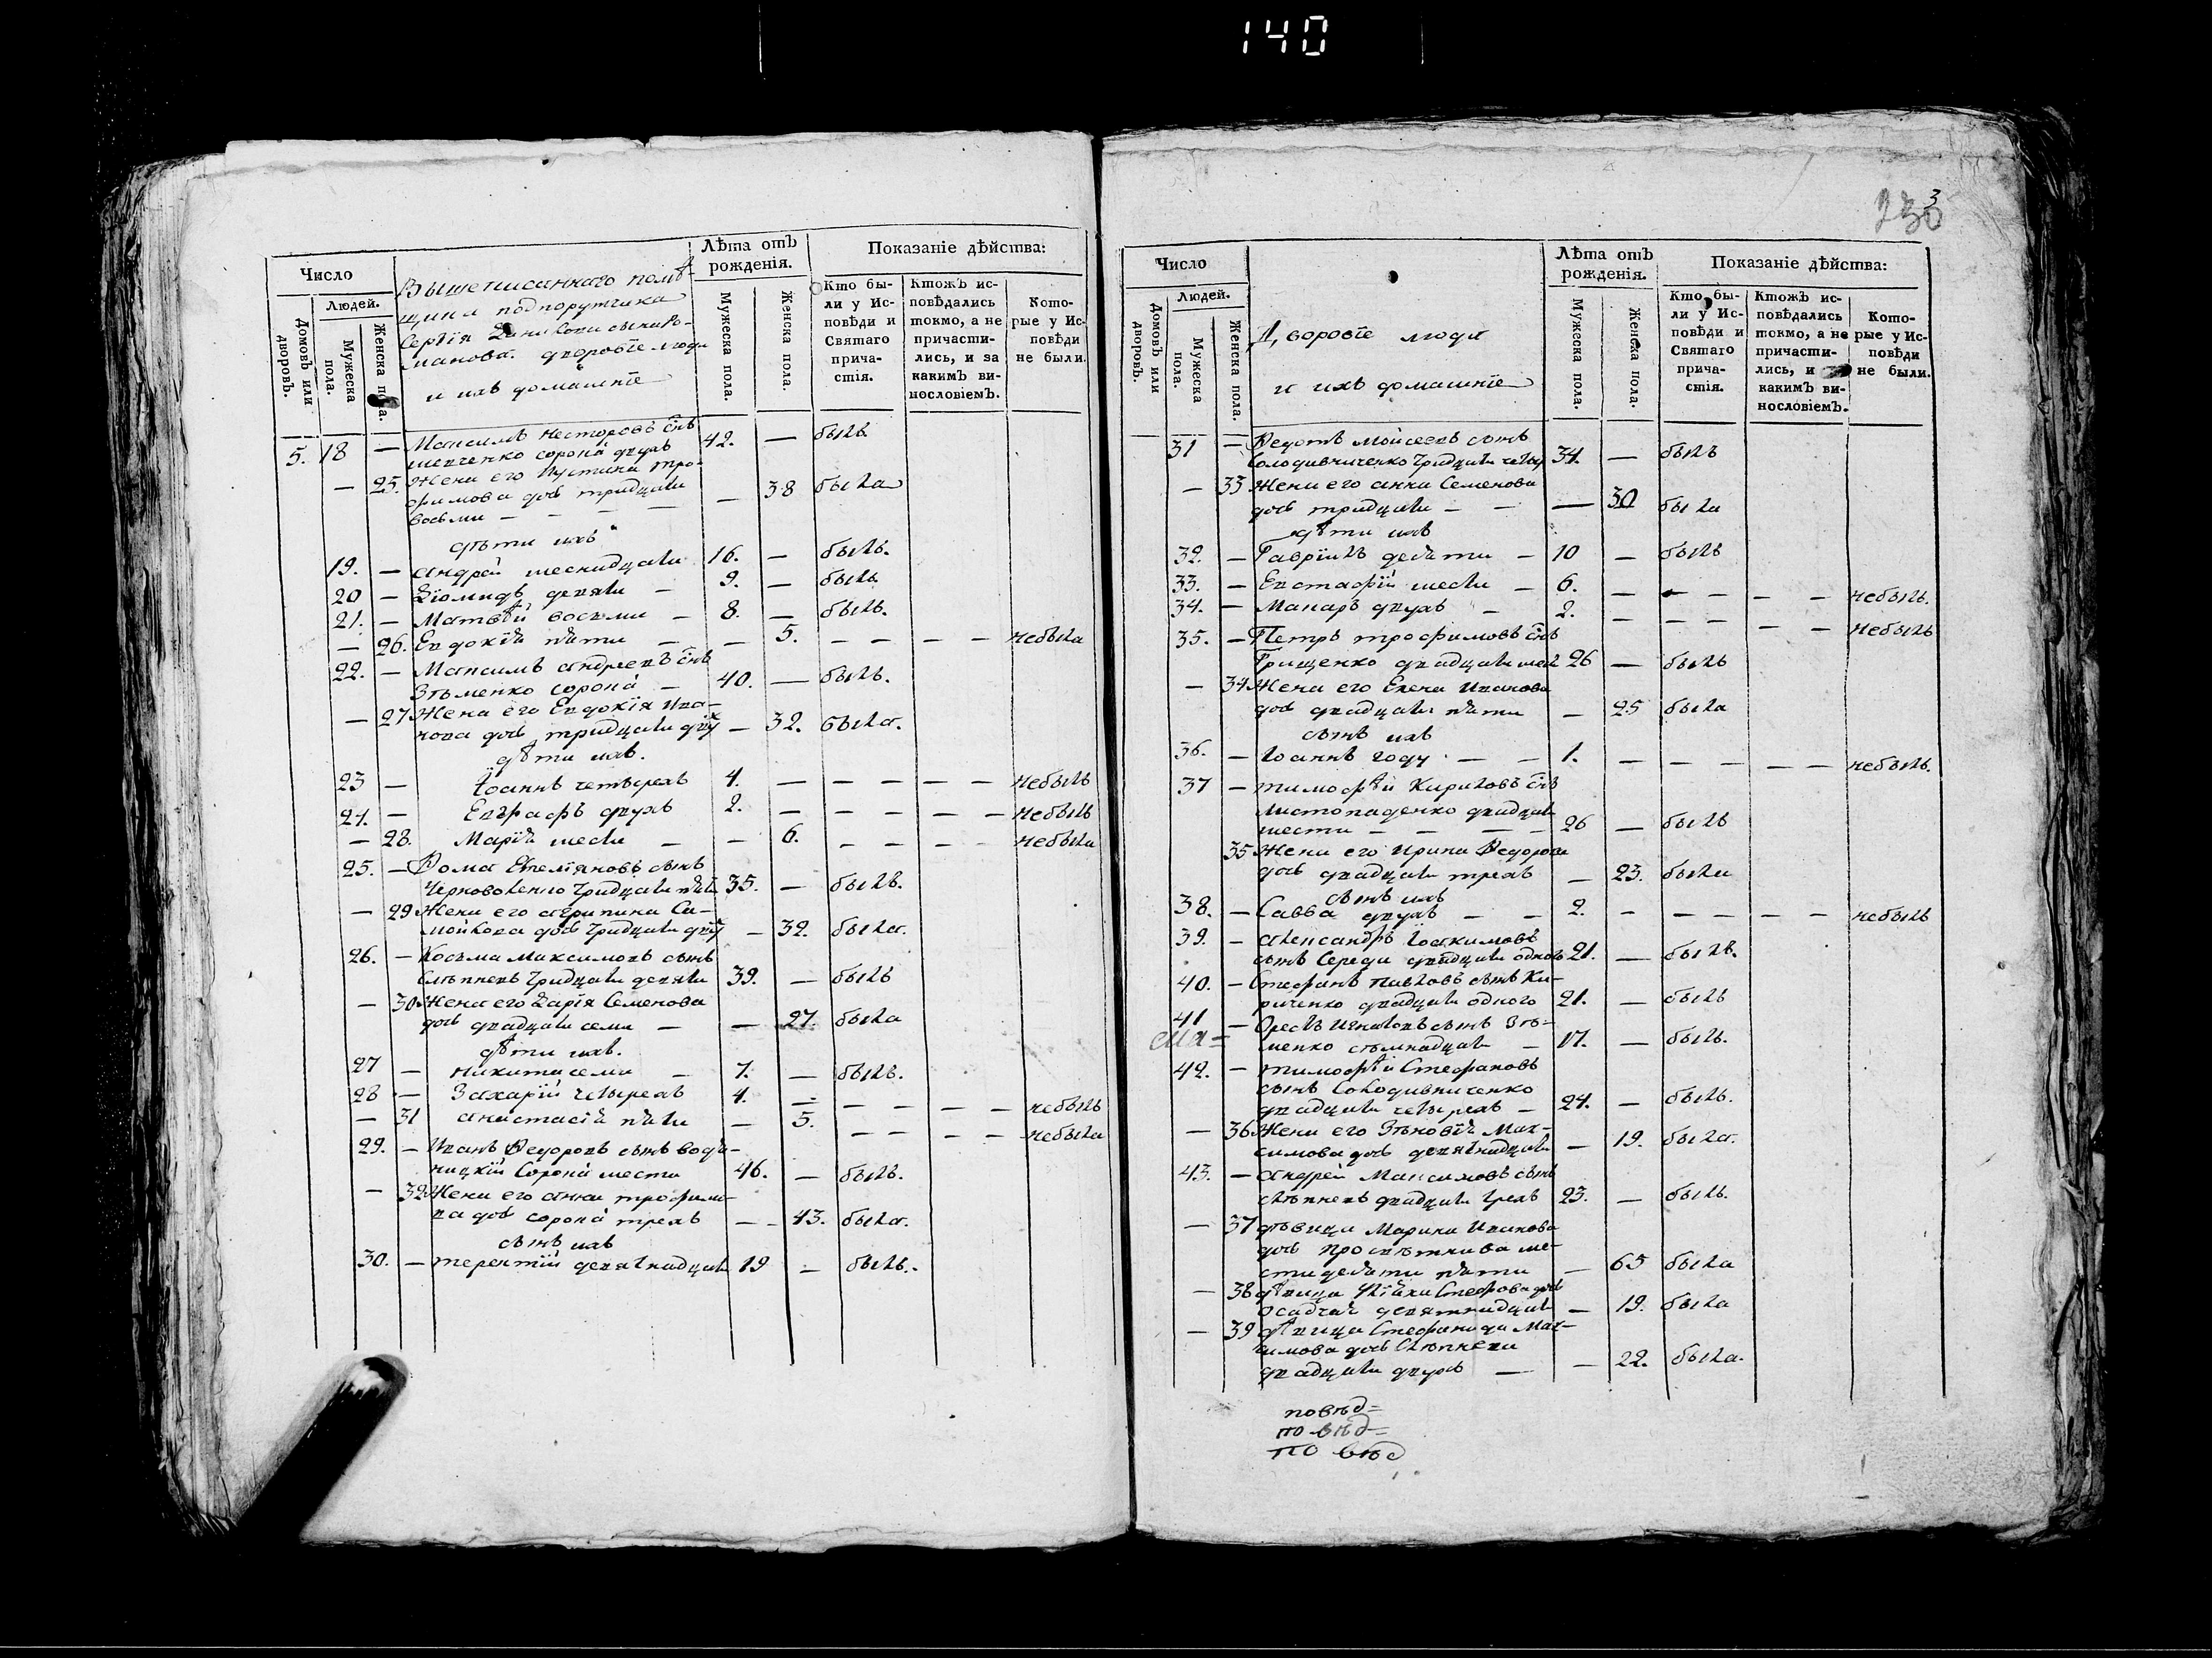 140
Число
Людей.
Домовъ или дворовъ.
Мужеска пола.
Женска пола.
Вышеписаннаго помѣ-
щика подпоручика
Сергѣя сына Ро-
манова. дворовіе люди
и ихъ домашніе
Лѣта отъ рожденія.
Мужеска пола.
Женска пола.
Показаніе дѣйства:
Кто бы-
ли у Ис-
повѣди и
Святаго
прича-
стія.
Ктожъ ис-
повѣдались
токмо, а не
причасти-
лись, и за
какимъ ви-
нословіемъ.
Кото-
рые у Ис-
повѣди
не были.
5. 18 — Максимъ Несторовъ снъ
Шевченко сорока двухъ 42. — былъ
— 25. Жена его Иустина Тро-
фимова дочь тридцати
восьми — — — — 38 была
дѣти ихъ
19. — Андрей шеснадцати 16. — былъ.
20 — Діомидъ девяти — 9. — былъ
21. — Матвѣй восьми — 8. — былъ.
— 26. Евдокія пяти — — 5. — — — — небыла
22. — Максимъ Андреевъ снъ
Зѣменко сорока — 40. — былъ.
— 27 Жена его Евдокія Ива-
нова дочь тридцати двухъ — 32. была.
дѣти ихъ.
23 — Іоаннъ четырехъ 4. — — — — — небылъ
24. — Евграфъ двухъ 2. — — — — — небылъ
— 28. Марія шести — — 6. — — — — небыла
25. — Ѳома Емеліяновъ сынъ
Черноволенко тридцати пяти 35. — былъ.
— 29 Жена его Агрипина Са-
мойлова дочь тридцати двухъ — 32. была.
26. — Косьма Максимовъ сынъ
Слѣпневъ тридцати девяти 39. — былъ
— 30 Жена его Дарія Семенова
дочь двадцати семи — — 27. была
дѣти ихъ.
27 — Никита семи — 7. — былъ.
28 — Захарій четырехъ 4. — — — — — небылъ
— 31 Анастасія пяти — 5. — — — — небыла
29. — Иванъ Ѳедоровъ сынъ Водя-
ницкій сорока шести 46. — былъ.
— 32 Жена его Анна Трофимо-
ва дочь сорока трехъ — — 43. была.
сынъ ихъ
30. — Терентій девятнадцати 19 — былъ.
230
3
Число
Людей.
Домовъ или дворовъ.
Мужеска пола.
Женска пола.
Дворовіе люди
и ихъ домашніе
Лѣта отъ рожденія.
Мужеска пола.
Женска пола.
Показаніе дѣйства:
Кто бы-
ли у Ис-
повѣди и
Святаго
прича-
стія.
Ктожъ ис-
повѣдались
токмо, а не
причасти-
лись, и
какимъ ви-
нословіемъ.
Кото-
рые у Ис-
повѣди
не были.
31 — Ѳедотъ Мойсеевъ сынъ
Солодивниченко тридцати четыр 34. — былъ
— 33 Жена его Анна Семенова
дочь тридцати — — — 30 была
дѣти ихъ
32. — Гавріилъ десяти — 10 — былъ
33. — Евстафій шести — 6. — — — — — небылъ.
34. — Макаръ двухъ — 2. — — — — — небылъ
35. — Петръ Трофимовъ снъ
Грищенко двадцати шес 26 — былъ
— 34 Жена его Елена Иванова
дочь двадцати пяти — 25 была
сынъ ихъ
36. — Іоаннъ году — — 1. — — — — — небылъ.
37 — Тимофѣй Кириловъ снъ
Листопаденко двадцати
шести — — — — 26 — былъ
35 Жена его Ирина Ѳедорова
дочь двадцати трехъ — 23. была
сынъ ихъ
38. — Савва двухъ — — 2. — — — — — небылъ
39. — Александръ Іоакимовъ
сынъ Середа двадцати одного 21. — былъ.
40. — Стефанъ Павловъ сынъ Ки-
риченко двадцати одного 21. — былъ
41 — Орестъ Игнатовъ сынъ Зѣ-
менко сѣмнадцати — 17. — былъ.
42. — Тимофѣй Стефановъ
сынъ Солодивниченко
двадцати четырехъ — 24. — былъ.
— 36 Жена его Зѣновія Мак-
симова дочь девятнадцати — 19. была.
43. — Андрей Максимовъ сынъ
слѣпневъ двадцати трехъ 23. — былъ.
— 37 дѣвица Марина Иванова
дочь ше-
стидесяти пяти — 65 была
— 38 дѣвица дочь
Осадчая девятнадцати — 19. была
— 39 дѣвица Стефанида Мак-
симова дочь Слѣпнева
двадцати двухъ — — 22. была.
повѣд=
по вѣд=
по вѣд